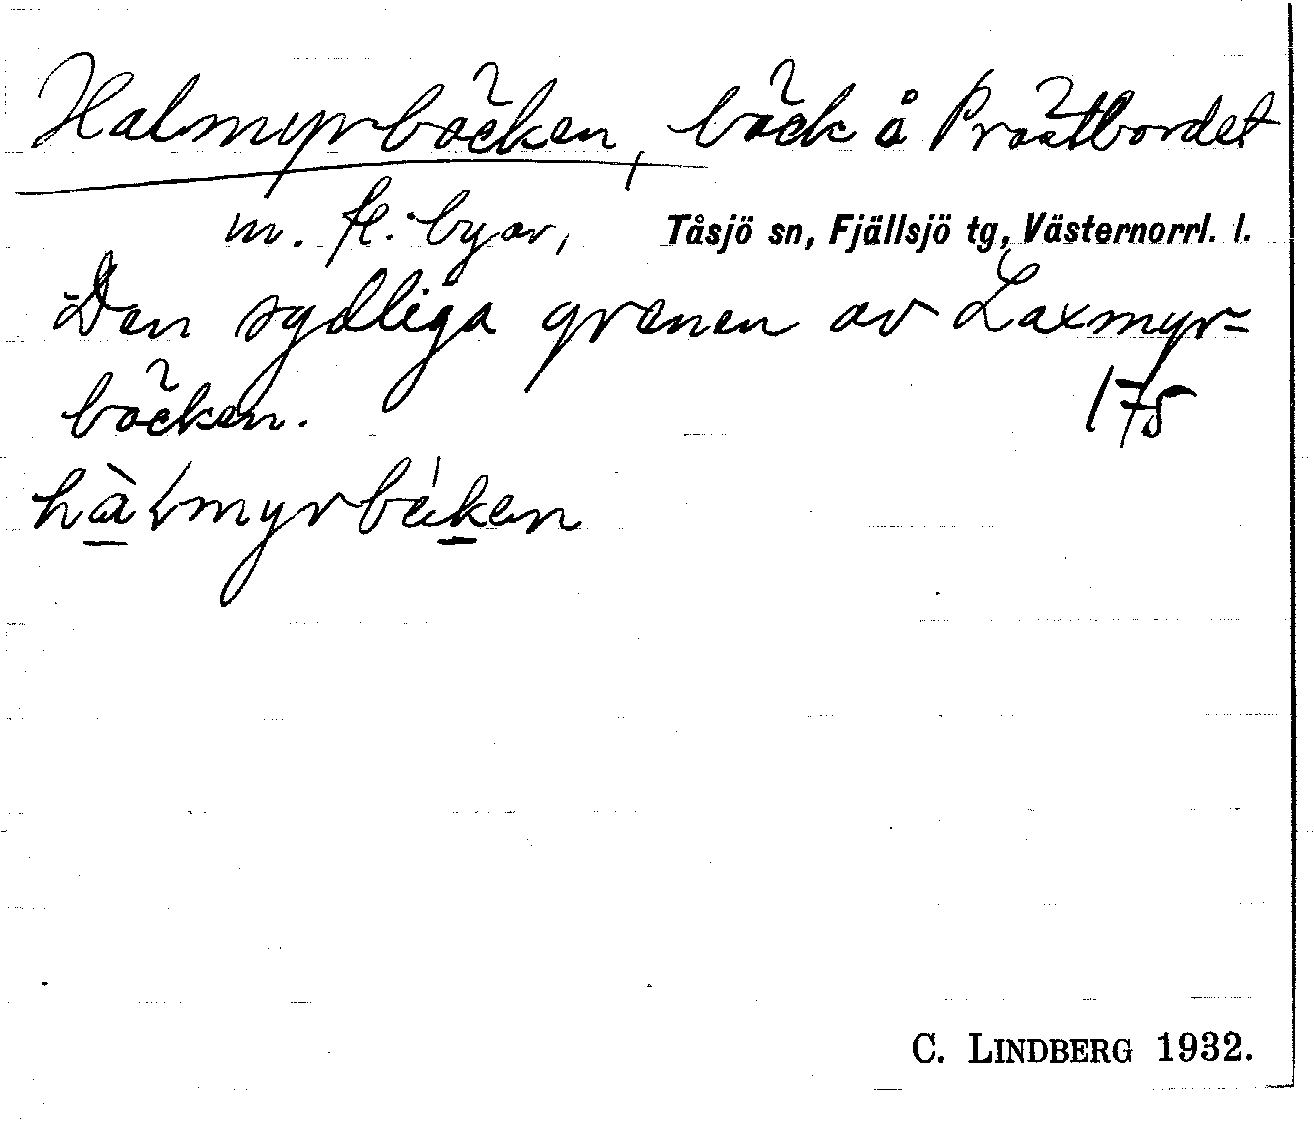 Halmyrbäcken, bäck å Prästbordet
m. fl. byar, Tåsjö sn, Fjällsjö tg, Västernorrl. l.
Den sydliga grenen av Laxmyr=
bäcken.
175
C. LINDBERG 1932.